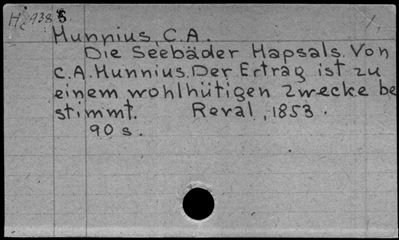 Hc 938
Hunnius, C.A.
Die Seebäder Hapsals. Von
C.A. Hunnius. Der Ertrag ist zu
einem wohlhütigen Zwecke be
stimmt. Reval, 1853.
90 s.